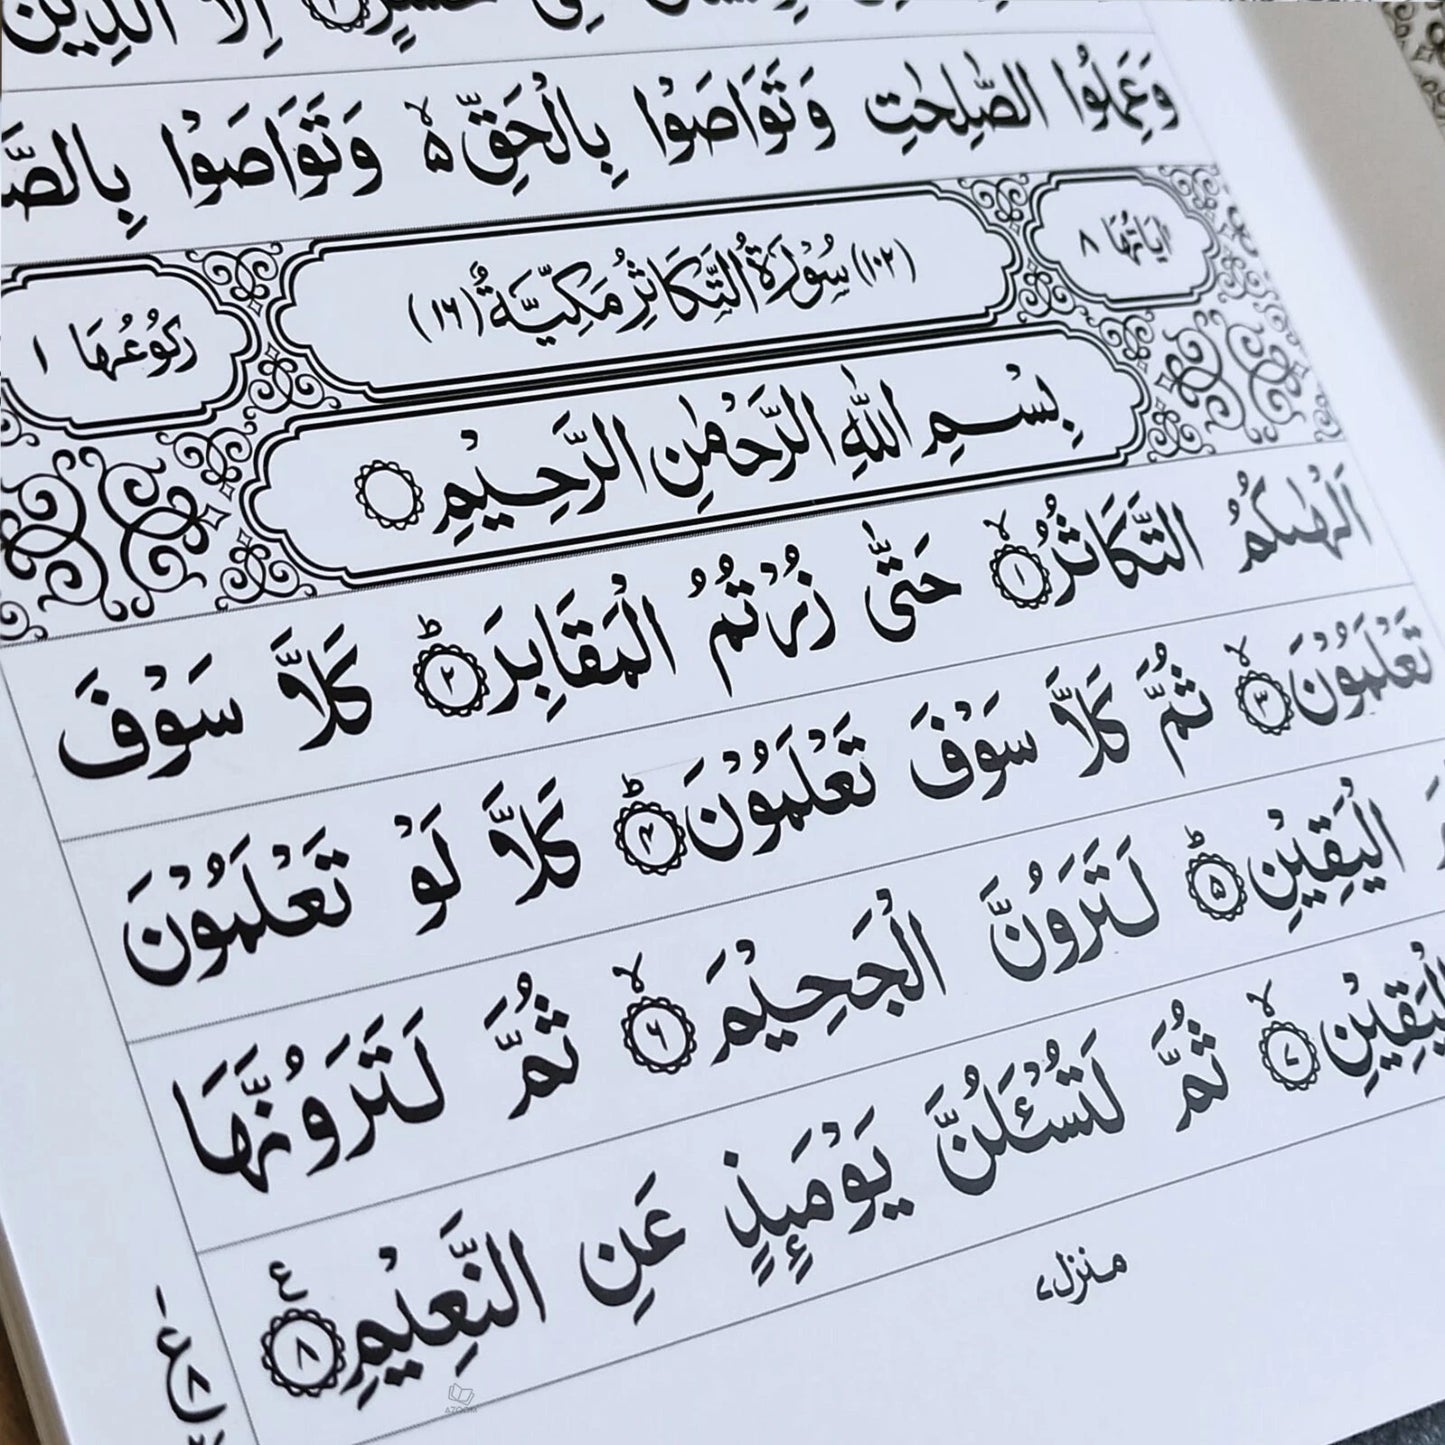 اِلَّا الَّذِيْنَ
وَعَمِلُوا الصّٰلِحٰتِ وَتَوَاصَوْا بِالْحَقِّ ۙ۬ وَتَوَاصَوْا
اٰيَاتُهَا ٨ (١٠٢) سُوْرَةُ التَّكَاثُرِ مَكِّيَّةٌ (١٦) رُكُوْعُهَا ١
بِسْمِ اللّٰهِ الرَّحْمٰنِ الرَّحِيْمِ
اَلْهٰىكُمُ التَّكَاثُرُ ۙ﴿١﴾ حَتّٰى زُرْتُمُ الْمَقَابِرَ ؕ﴿٢﴾ كَلَّا سَوْفَ
تَعْلَمُوْنَ ۙ﴿٣﴾ ثُمَّ كَلَّا سَوْفَ تَعْلَمُوْنَ ؕ﴿٤﴾ كَلَّا لَوْ تَعْلَمُوْنَ
الْيَقِيْنِ ؕ﴿٥﴾ لَتَرَوُنَّ الْجَحِيْمَ ۙ﴿٦﴾ ثُمَّ لَتَرَوُنَّهَا
الْيَقِيْنِ ۙ﴿٧﴾ ثُمَّ لَتُسْـَٔلُنَّ يَوْمَىِٕذٍ عَنِ النَّعِيْمِ ﴿٨﴾ ع
منزل ٧
١
ع
٨